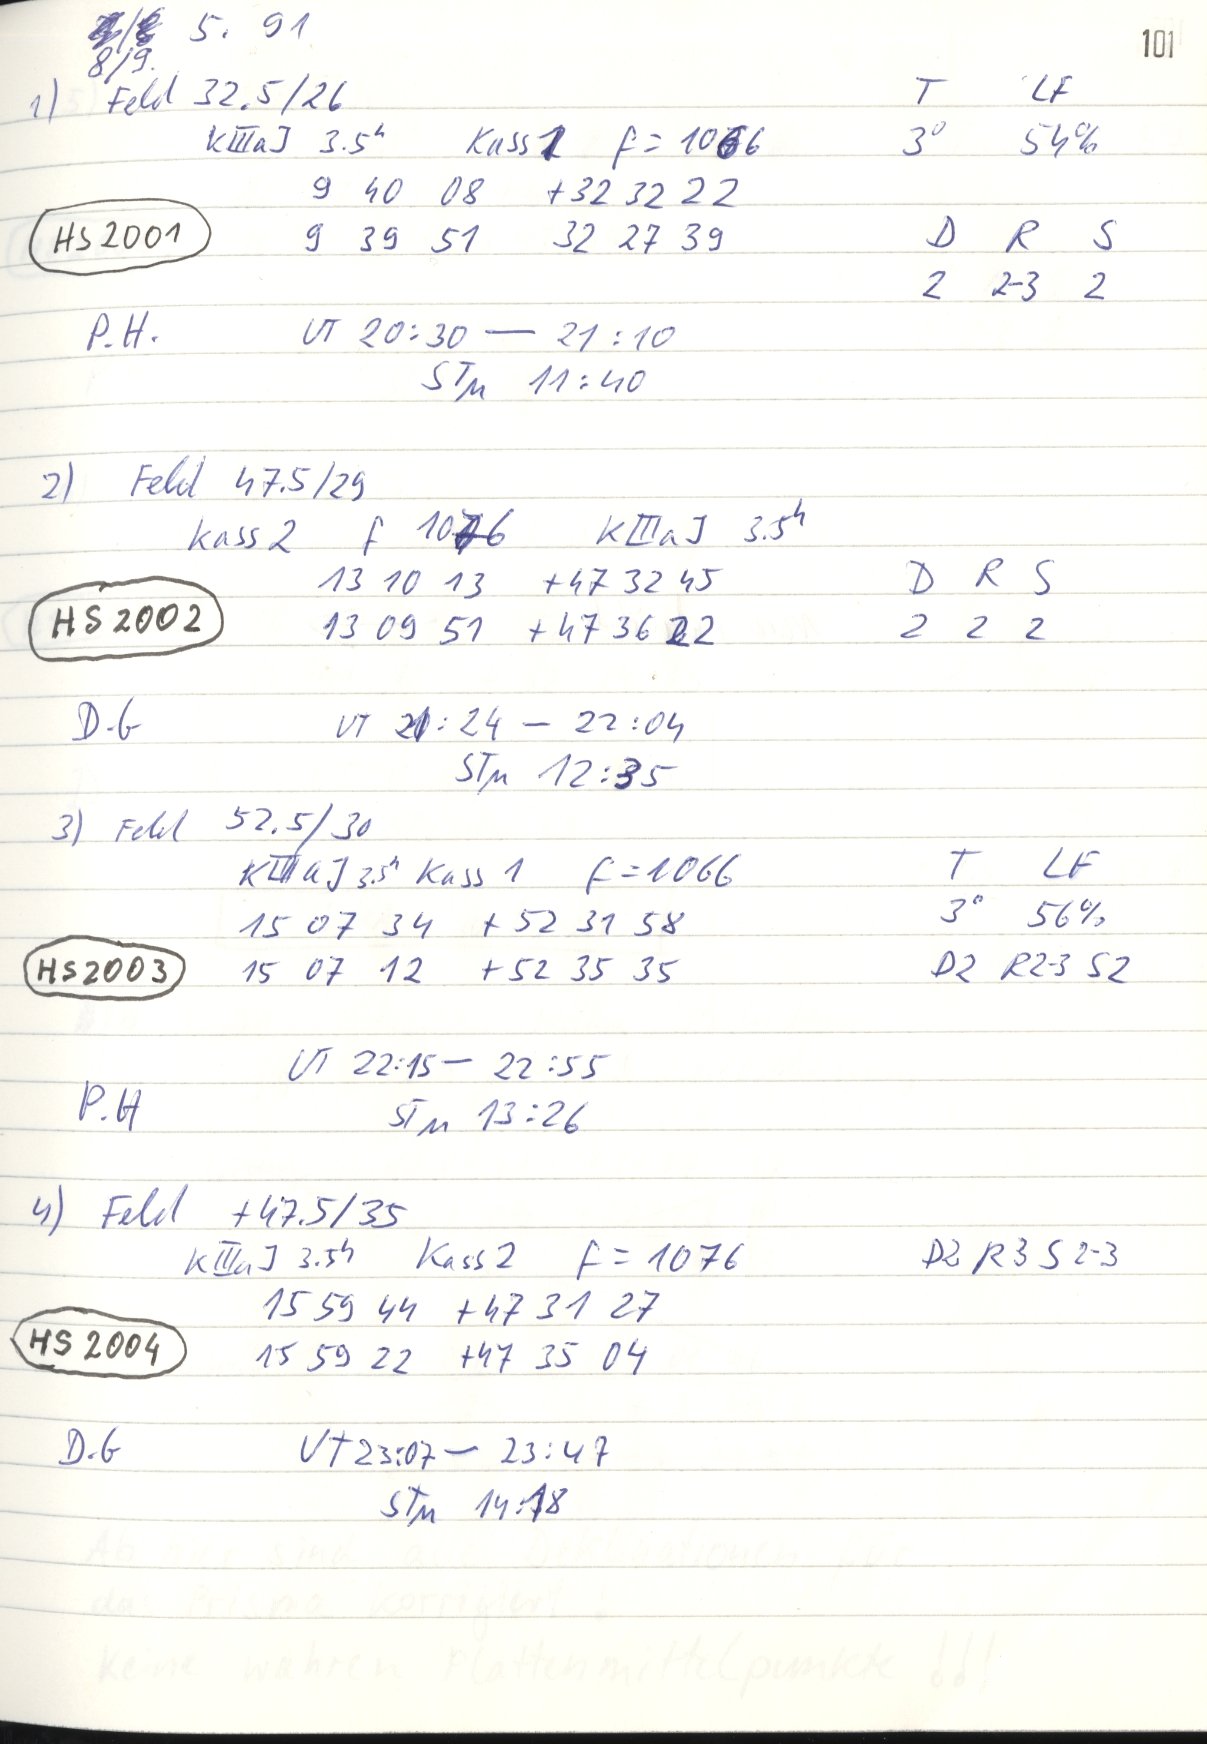 5. 91
101
8/9.
1) Feld 32.5/26 T LF
KIIIaJ 3.5h Kass 1 f = 1066 3° 54%
9 40 08 +32 32 22
HS2001 9 39 51 32 27 39 D R S
2 2-3 2
P.H. UT 20:30 — 21:10
STM 11:40
2) Feld 47.5/29
Kass 2 f 1076 KIIIaJ 3.5h
13 10 13 +47 32 45 D R S
HS2002 13 09 51 +47 36 22 2 2 2
D.G UT 21:24 — 22:04
STM 12:35
3) Feld 52.5/30
KIIIaJ 3.5h Kass 1 f = 1066 T LF
15 07 34 +52 31 58 3° 56%
HS2003 15 07 12 +52 35 35 D2 R2-3 S2
UT 22:15 — 22:55
P.H STM 13:26
4) Feld +47.5/35
KIIIaJ 3.5h Kass 2 f = 1076 D2 R3 S2-3
15 59 44 +47 31 27
HS2004 15 59 22 +47 35 04
D.G UT 23:07 — 23:47
STM 14:18